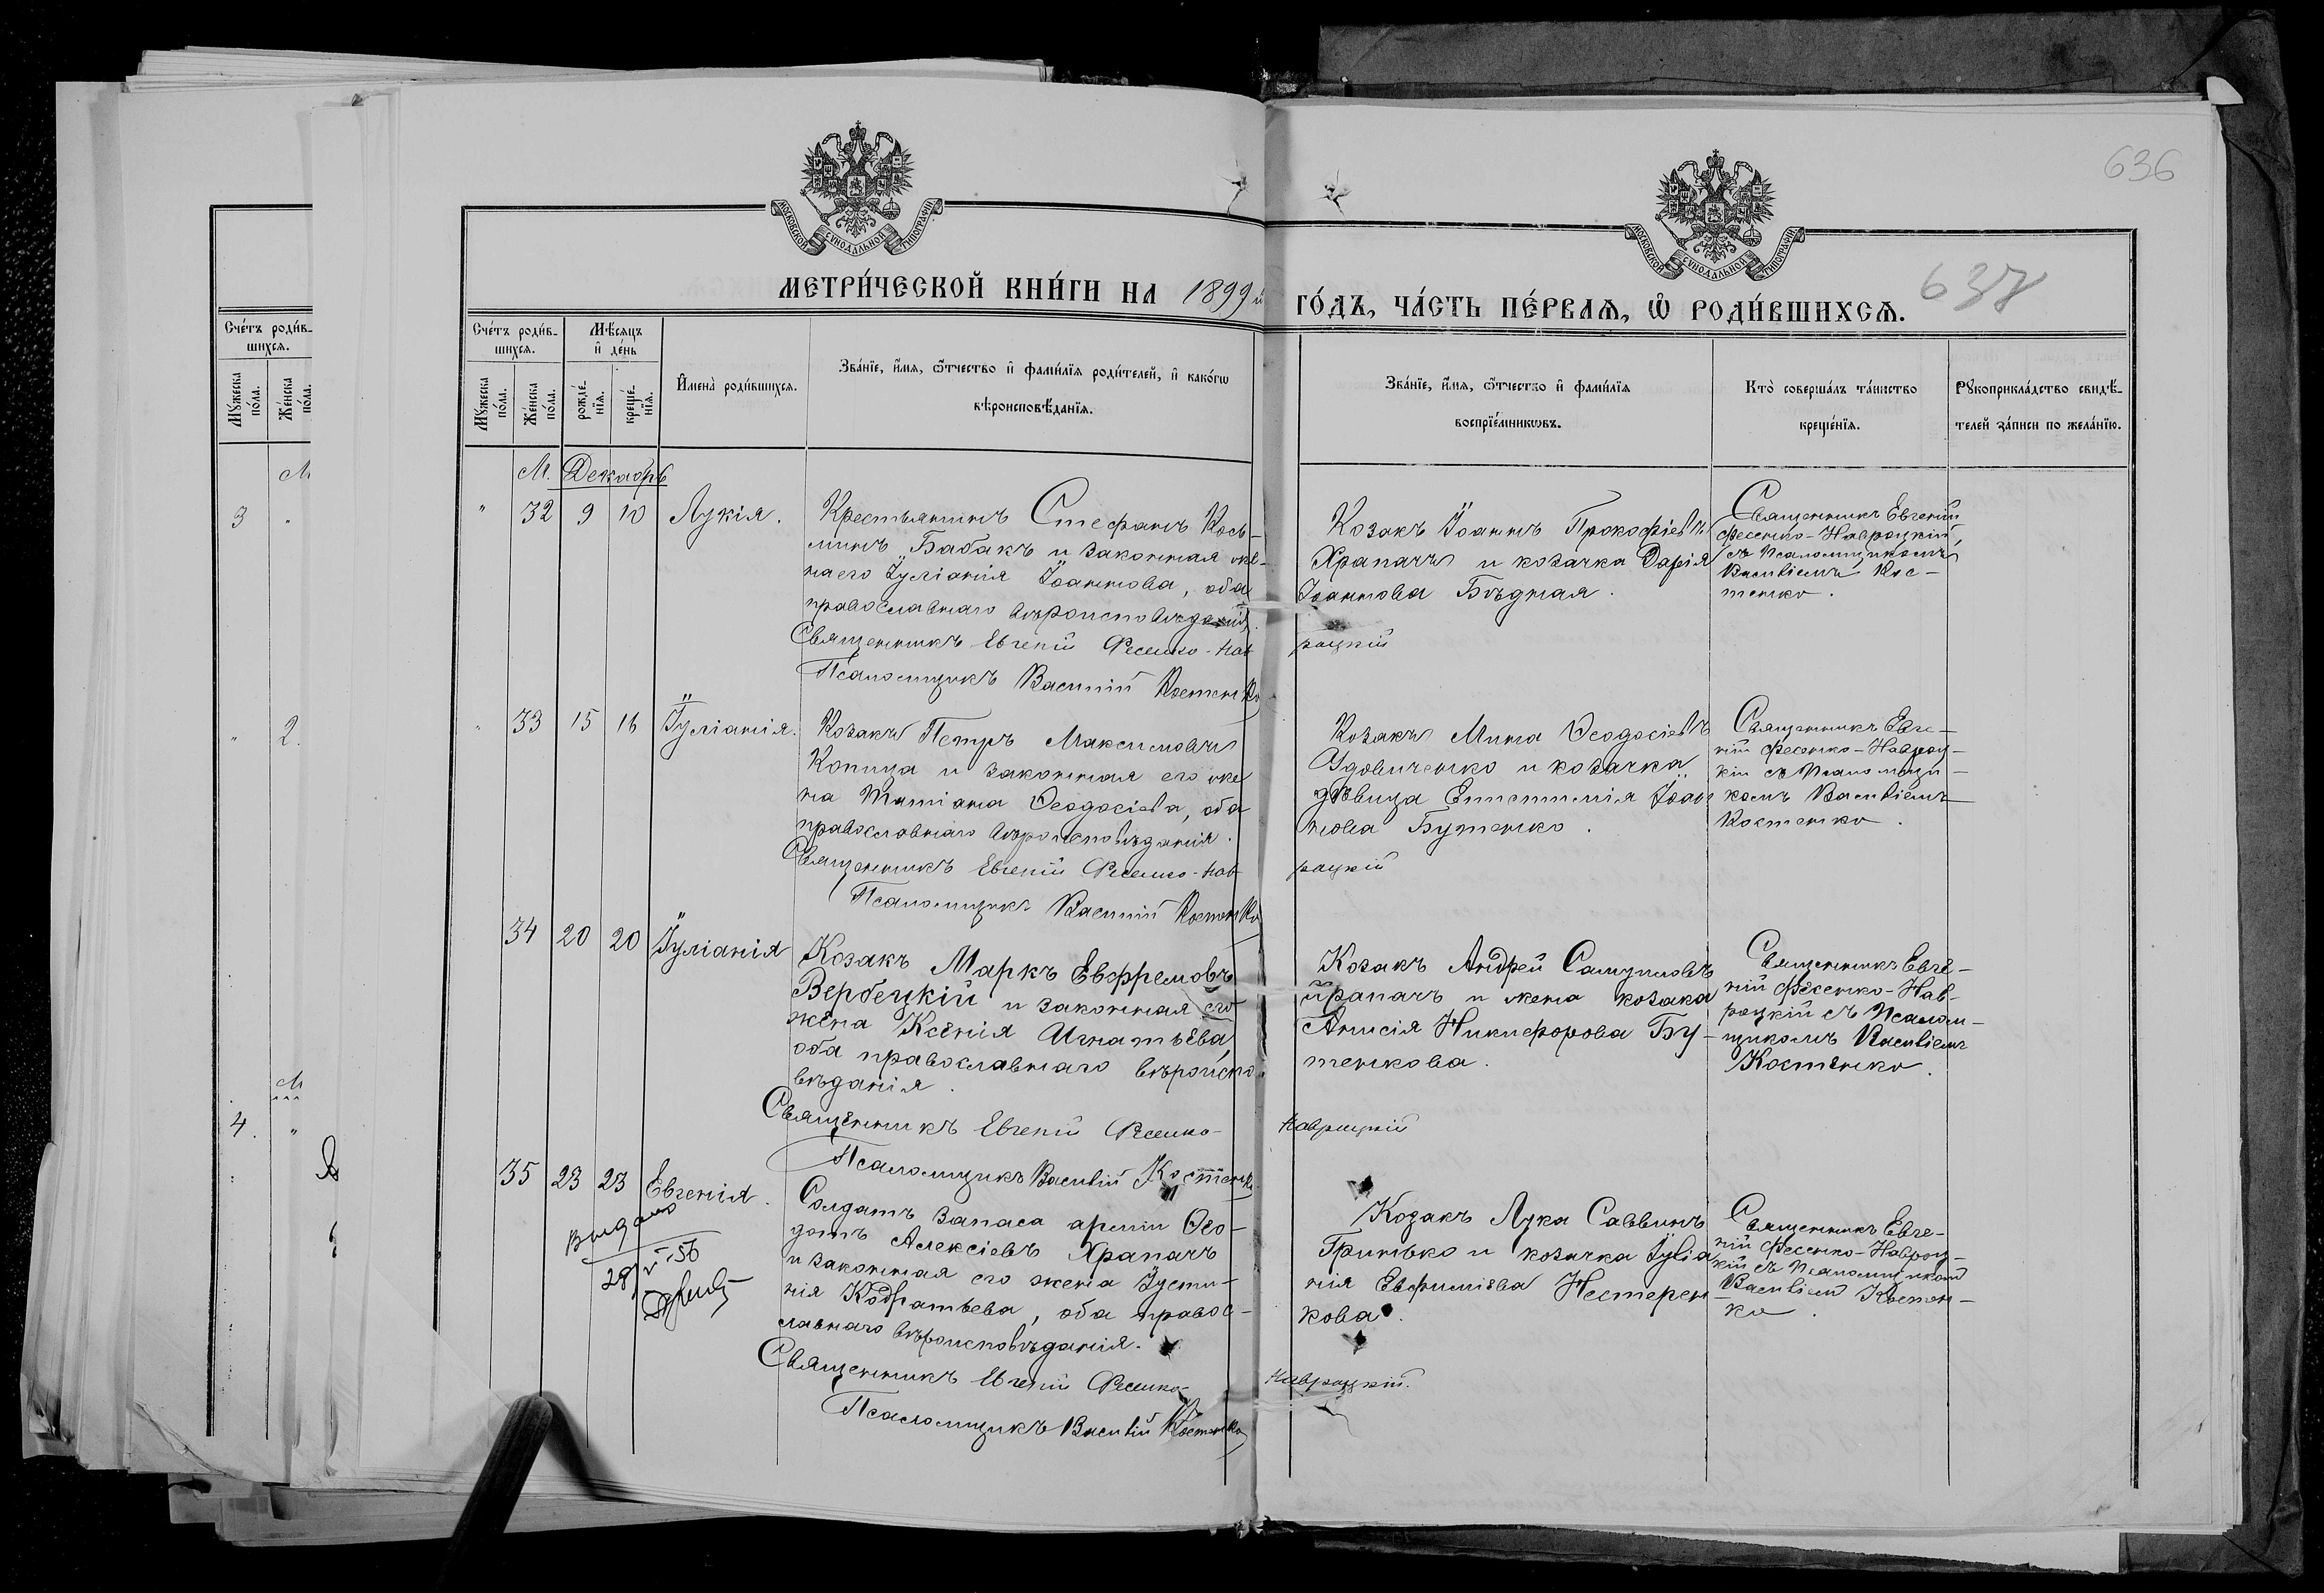 636
637
МОСКОВСКОЙ СУНОДАЛЬНОЙ ТИПОГРАФІИ
МОСКОВСКОЙ СУНОДАЛЬНОЙ ТИПОГРАФІИ
МЕТРИ́ЧЕСКОЙ КНИ́ГИ НА 1899й ГО́ДЪ, ЧА́СТЬ ПЕ́РВАѦ, Ѽ РОДИ́ВШИХСѦ.
Сче́тъ роди́в-
шихсѧ.
Мꙋжеска по́ла.
Же́нска по́ла.
Сче́тъ роди́в-
шихсѧ.
Мꙋжеска по́ла.
Же́нска по́ла.
Мѣ́сѧцъ и҆ де́нь
рожде́-нїѧ.
креще́-нїѧ.
И҆мена̀ роди́вшихсѧ.
Зва́нїе, и҆́мѧ, ѻ҆́тчество и҆ фами́лїѧ роди́телей, и҆ како́гѡ
вѣроисповѣ́данїѧ.
Зва́нїе, и҆́мѧ, ѻ҆́тчество и҆ фами́лїѧ
воспрїе́мникѡвъ.
Кто̀ соверша́лъ та́инство
креще́нїѧ.
Рꙋкоприкла́дство свидѣ́-
телей за́писи по жела́нїю.
М
3 "
" 2.
М
4. "
М. Декабрь
" 32 9 10 Лукія.
Крестьянинъ Стефанъ Кось-
минъ Бабакъ и законная же-
на его Іуліанія Іоаннова, оба
православнаго вѣроисповѣданія.
Священникъ Евгеній Фесенко-Нав
роцкій
Псаломщикъ Василій Костенко
Козакъ Іоаннъ Прокофіевъ
Храпачъ и козачка Дарія
Іоаннова Бѣдная.
Священникъ Евгеній
Фесенко-Навроцкій,
съ Псаломщикомъ
Василіемъ Кос-
тенко.
" 33 15 16 Іуліанія.
Козакъ Петръ Максимовъ
Копица и законная его же
на Татіана Ѳеодосіева, оба
православнаго вѣроисповѣданія.
Священникъ Евгеній Фесенко-Нав
роцкій
Псаломщикъ Василій Костенко
Козакъ Мина Ѳеодосіевъ
Удовиченко и козачка
дѣвица Епистимія Іоан
нова Бутенко.
Священникъ Евге-
ній Фесенко-Навроц-
кій съ Псаломщи-
комъ Василіемъ
Костенко.
34 20 20 Іуліанія
Козакъ Маркъ Евфремовъ
Вербецкій и законная его
жена Ксенія Игнатьева,
оба православнаго вѣроиспо
вѣданія.
Священникъ Евгеній Фесенко-
Навроцкій
Псаломщикъ Василій Костенко
Козакъ Андрей Самуиловъ
Храпачъ и жена козака
Анисія Никифорова Бу-
тенкова.
Священникъ Евге-
ній Фесенко-Нав-
роцкій съ Псалом-
щикомъ Василіемъ
Костенко.
35 23 23 Евгенія.
Выдано
28 V-56
Солдатъ запаса арміи Ѳео-
дотъ Алексіевъ Храпачъ
и законная его жена Іусти-
нія Кодратьева, оба правос-
лавнаго вѣроисповѣданія.
Священникъ Евгеній Фесенко-
Навроцкій.
Псаломщикъ Василій Костенко
Козакъ Лука Саввинъ
Гринько и козачка Іуліа
нія Евфиміева Нестерен
кова.
Священникъ Евге-
ній Фесенко-Навроц-
кій съ Псаломщикомъ
Василіем Костен-
ко.